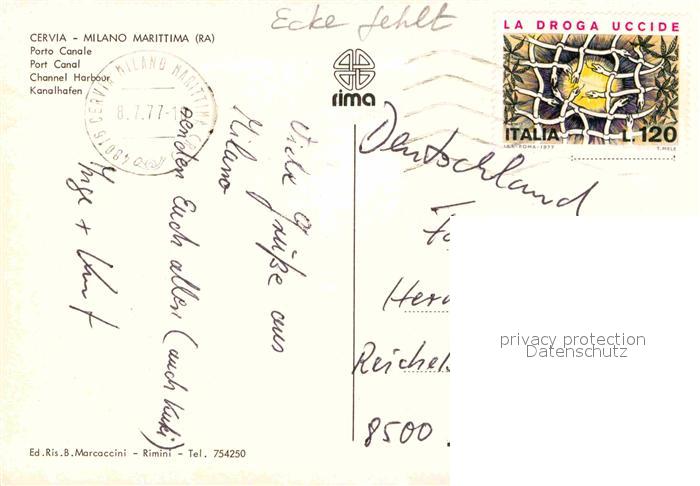 Ecke fehlt
CERVIA - MILANO MARITTIMA (RA)
Porto Canale
Port Canal
Channel Harbour
Kanalhafen
48015 CERVIA MILANO MARITTIMA
8.7.77
rima
LA DROGA UCCIDE
ITALIA L.120
I.P.S.-ROMA-1977 T. MELE
Viele Grüße aus
Milano
senden Euch allen (auch Kuki)
Inge + Kurt
Deutschland
Fa
Her
Reichels
8500
privacy protection
Datenschutz
Ed.Ris.B.Marcaccini - Rimini - Tel. 754250